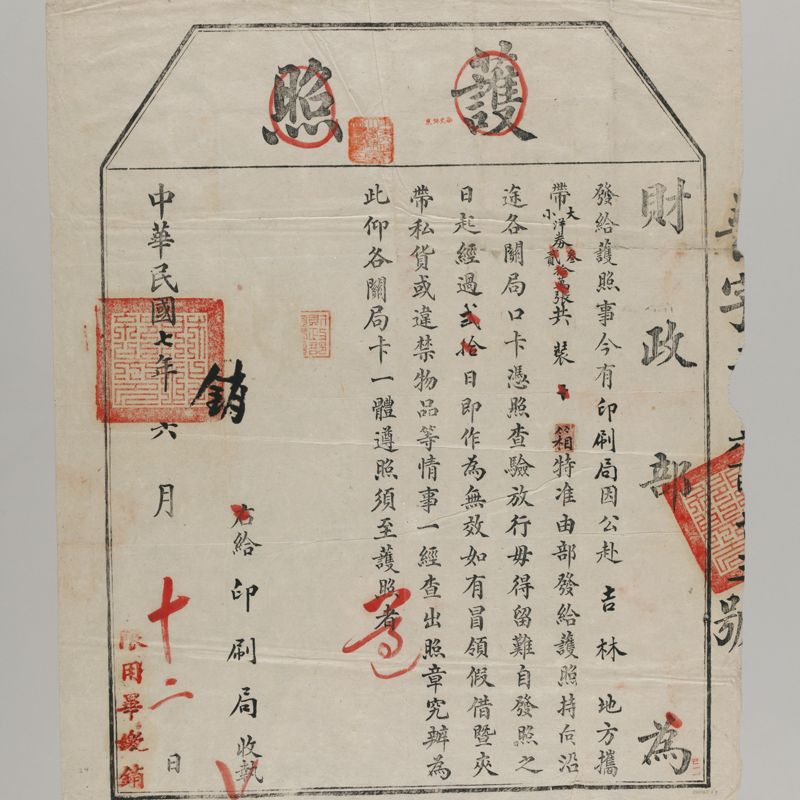 護照
財政部 為
發給護照事今有印刷局因公赴吉林地方攜
帶大小洋券叁貳拾萬張共裝 箱特准由部發給護照持向沿
途各關局口卡憑照查驗放行毋得留難自發照之
日起經過弍拾日即作為無效如有冒領假借暨夾
帶私貨或違禁物品等情事一經查出照章究辦為
此仰各關局卡一體遵照須至護照者
遵
右給印刷局收執
銷
中華民國七年六月十二日
限用畢繳銷